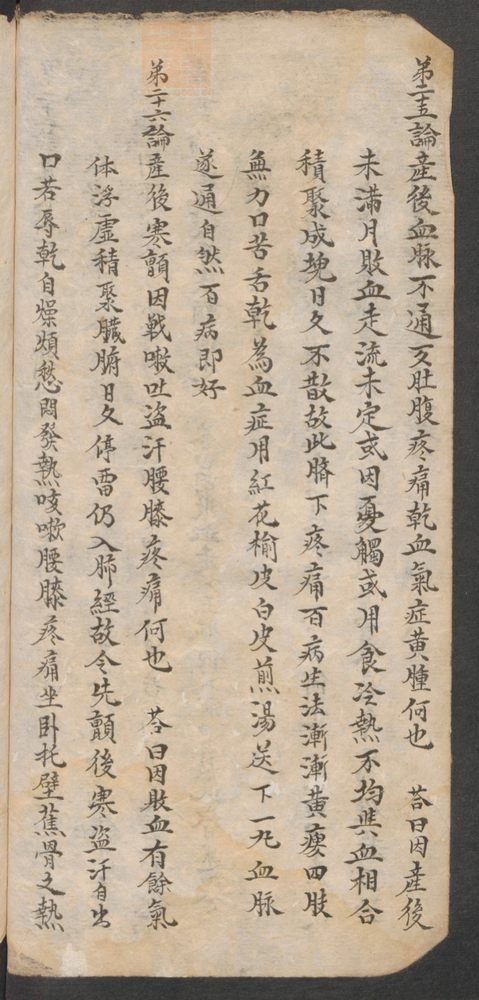 第二十五論産後血脉不通又肚腹疼痛乾血氣症黄腫何也　荅曰因産後
未滿月敗血走流未定或因憂觸或用食冷熱不均與血相合
積聚成塊日久不散故此臍下疼痛百病生法漸漸黄瘦四肢
無力口苦舌乾為血症用紅花榆皮白皮煎湯送下一丸血脉
遂通自然百病即好
第二十六論産後寒顫因戰嗽吐盗汗腰膝疼痛何也　荅曰因敗血有餘氣
体浮虛積聚臟腑日久停留仍入肺經故令先顫後寒盗汗自出
口若辱乾自燥煩愁悶發熱咳嗽腰膝疼痛坐卧托壁蕉骨之熱